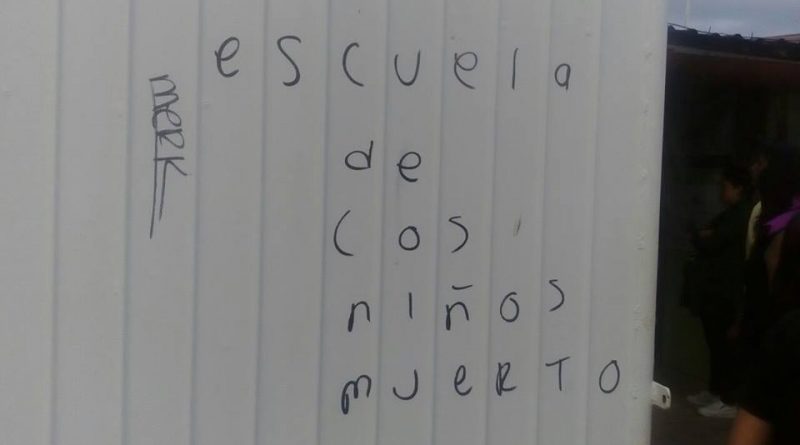 escuela
de
los
niños
muerto
merk